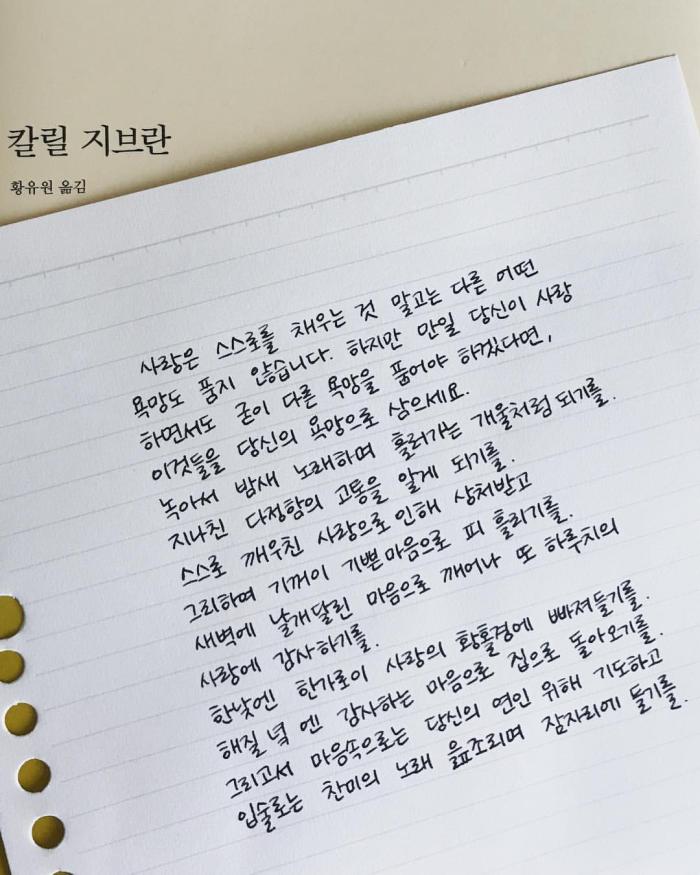 칼릴 지브란
황유원 옮김
사랑은 스스로를 채우는 것 말고는 다른 어떤
욕망도 품지 않습니다. 하지만 만일 당신이 사랑
하면서도 굳이 다른 욕망을 품어야 하겠다면,
이것들을 당신의 욕망으로 삼으세요.
녹아서 밤새 노래하며 흘러가는 개울처럼 되기를.
지나친 다정함의 고통을 알게 되기를.
스스로 깨우친 사랑으로 인해 상처받고
그리하여 기꺼이 기쁜 마음으로 피 흘리기를.
새벽에 날개달린 마음으로 깨어나 또 하루치의
사랑에 감사하기를.
한낮엔 한가로이 사랑의 황홀경에 빠져들기를.
해질 녘 엔 감사하는 마음으로 집으로 돌아오기를.
그리고서 마음속으로는 당신의 연인 위해 기도하고
입술로는 찬미의 노래 읊조리며 잠자리에 들기를.